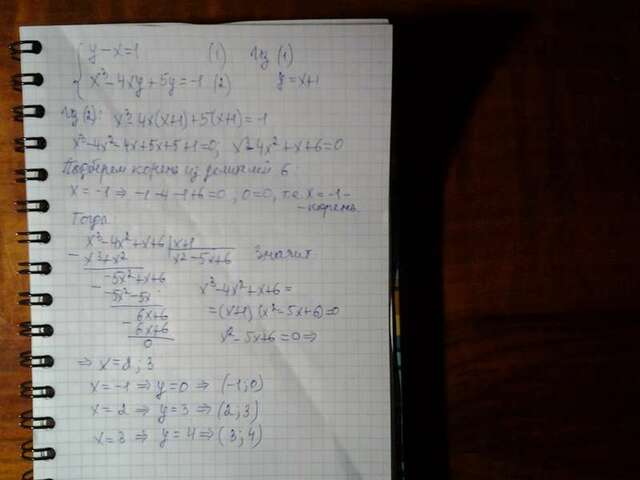 { y-x=1 (1) Из (1)
x³-4xy+5y=-1 (2) y=x+1
Из (2): x³-4x(x+1)+5(x+1)=-1
x³-4x²-4x+5x+5+1=0; x³-4x²+x+6=0
Подберем корень из делителей 6:
x=-1 ⇒ -1-4-1+6=0; 0=0, т.е. x=-1-
-корень
Тогда
x³-4x²+x+6 | x+1
- x³+x² | x²-5x+6 Значит
-5x²+x+6
- -5x²-5x x³-4x²+x+6=
6x+6 =(x+1)(x²-5x+6)=0
- 6x+6
0 x²-5x+6=0 ⇒
⇒ x=2; 3
x=-1 ⇒ y=0 ⇒ (-1;0)
x=2 ⇒ y=3 ⇒ (2;3)
x=3 ⇒ y=4 ⇒ (3;4)